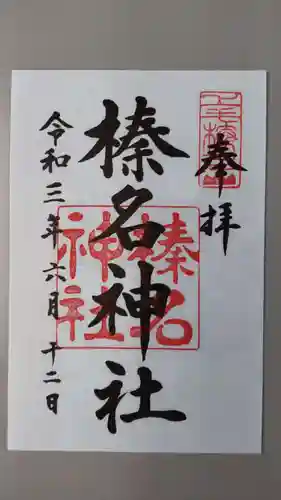 奉拝
榛名神社
令和三年六月十二日
榛名
神社